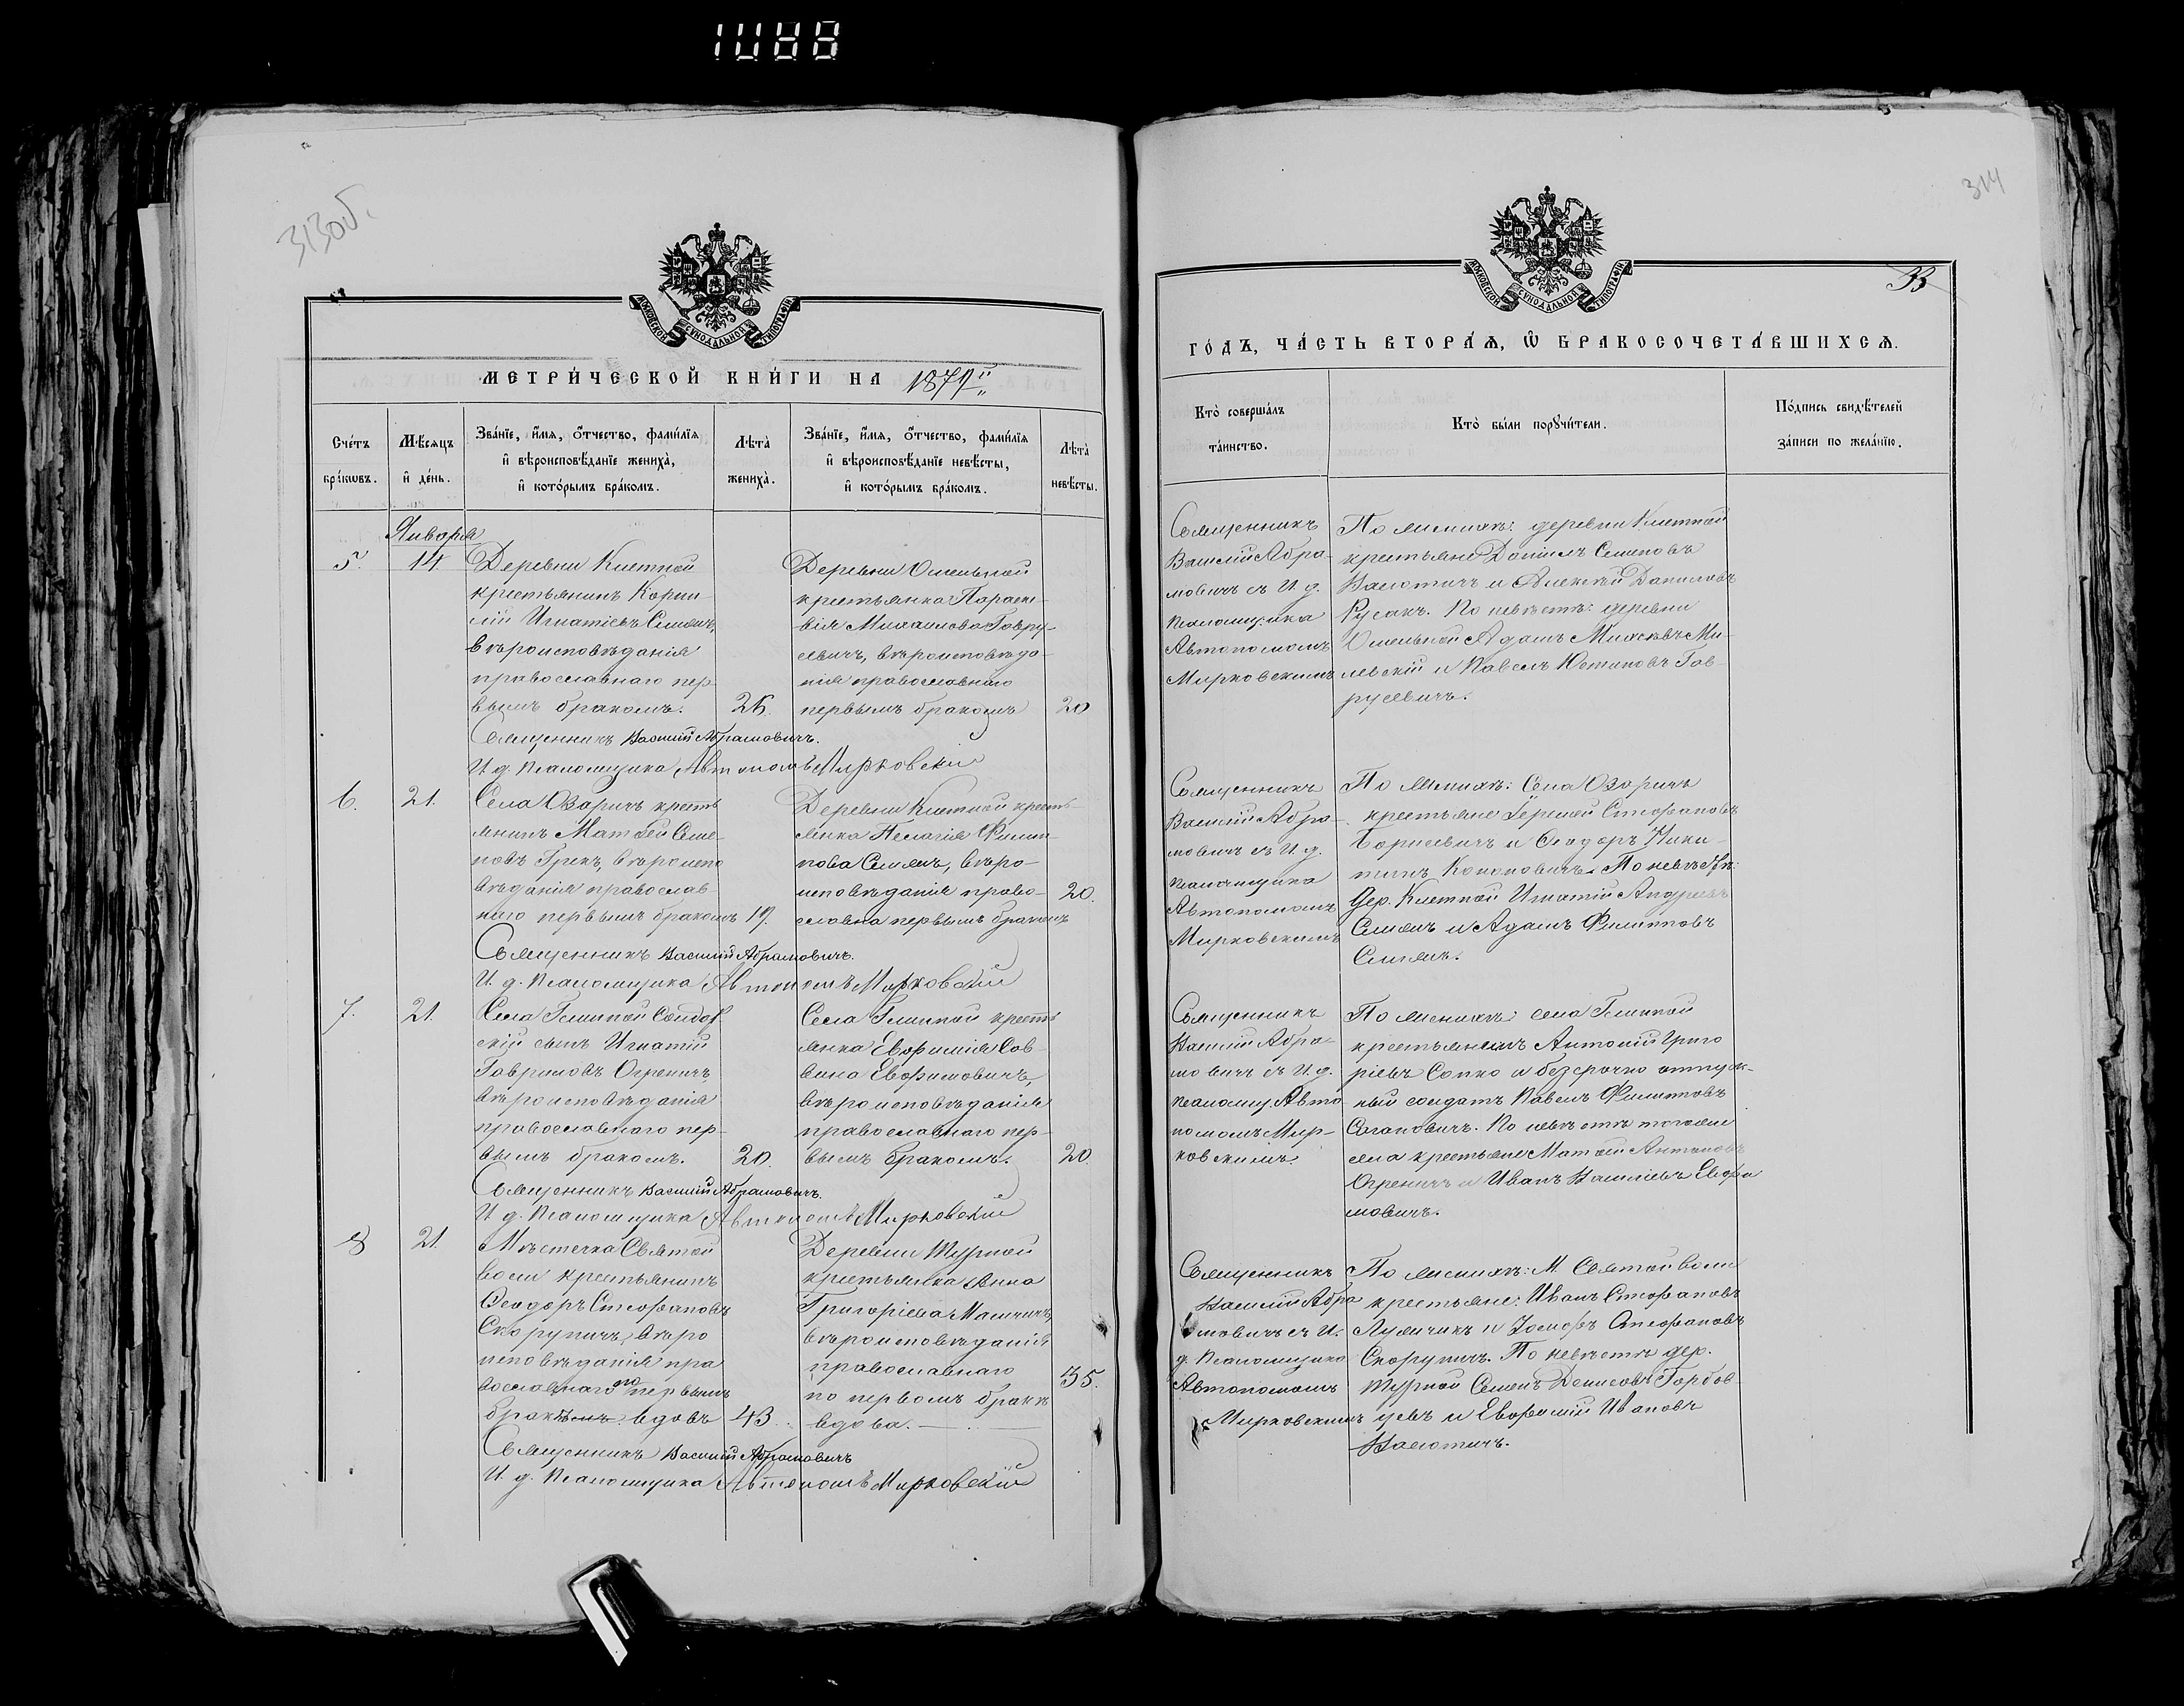 313об.
314
33
МОСКОВСКОЙ СѴНОДАЛЬНОЙ ТИПОГРАФІИ
МЕТРИ́ЧЕСКОЙ КНИ́ГИ НА 1879й
Сче́тъ бра́кѡвъ.
Мѣ́сѧцъ и҆ де́нь.
Зва́нїе, и҆́мѧ, ѻ҆́тчество, фами́лїѧ
и҆ вѣроисповѣ́данїе жениха̀,
и҆ кото́рымъ бра́комъ.
Лѣта̀ жениха̀.
Зва́нїе, и҆́мѧ, ѻ҆́тчество, фами́лїѧ
и҆ вѣроисповѣ́данїе невѣ́сты,
и҆ кото́рымъ бра́комъ.
Лѣта̀ невѣ́сты.
Января
5.
14
Деревни Клетной
крестьянинъ Корни-
лій Игнатіевъ Слижъ,
вѣроисповѣданія
православнаго пер-
вымъ бракомъ.
26.
Деревни Омельной
крестьянка Параске-
вія Михаилова Гавру-
севичъ, вѣроисповѣда-
нія православнаго
первымъ бракомъ
20
Священникъ Василій Абрамовичъ.
И. д. Псаломщика Автономъ Мирковскій
6.
21.
Села Озаричъ кресть
янинъ Матѳей Семе-
новъ Грекъ, вѣроиспо
вѣданія православ-
наго первымъ бракомъ
19.
Деревни Клетной кресть-
янка Пелагія Филип-
пова Слижъ, вѣро-
исповѣданія право-
славна первымъ бракомъ
20.
Священникъ Василій Абрамовичъ.
И. д. Псаломщика Автономъ Мирковскій
7.
21.
Села Глинной Солдат
скій сынъ Игнатій
Гавриловъ Огреничъ,
вѣроисповѣданія
православнаго пер-
вымъ бракомъ.
20.
Села Глинной кресть
янка Евфимія Сав-
вина Евфимовичъ,
вѣроисповѣданія
православнаго пер-
вымъ бракомъ.
20
Священникъ Василій Абрамовичъ.
И. д. Псаломщика Автономъ Мирковскій
8
21.
Мѣстечка Святой
воли крестьянинъ
Ѳеодоръ Стефановъ
Скорупичъ, вѣро
исповѣданія пра
вославнаго по первымъ
бракѣмъ. вдовъ
43.
Деревни Турной
крестьянка Анна
Григоріева
вѣроисповѣданія
православнаго
по первомъ бракѣ
вдова.
35.
Священникъ Василій Абрамовичъ
И. д. Псаломщика Автономъ Мирковскій
МОСКОВСКОЙ СѴНОДАЛЬНОЙ ТИПОГРАФІИ
ГО́ДЪ, ЧА́СТЬ ВТОРА́Ѧ, Ѽ БРАКОСОЧЕТА́ВШИХСѦ.
Кто̀ соверша́лъ
та́инство.
Кто̀ бы́ли порꙋчи́тели.
По́дпись свидѣ́телей
за́писи по жела́нїю.
Священникъ
Василій Абра-
мовичъ съ И. д.
Псаломщика
Автономомъ
Мирковскимъ
По женихѣ: деревни Клетной
крестьяне Даніилъ Семеновъ
Валютичъ и Алексѣй Даниловъ
Русакъ. По невѣстѣ: деревни
Омельной Адамъ
и Павелъ Юстиновъ Гав-
русевичъ.
Священникъ
Василій Абра-
мовичъ съ И. д.
Псаломщика
Автономомъ
Мирковскимъ
По женихѣ: Села Озаричъ
крестьяне Стефановъ
Борисевичъ и Ѳеодоръ Ники-
тинъ Кононовичъ. По невѣстѣ:
Дер. Клетной Игнатій Андреевъ
Слижъ и Адамъ Филипповъ
Слижъ.
Священникъ
Василій Абра-
мовичъ съ И. д.
псаломщ. Авто
номомъ Мир-
ковскимъ.
По женихѣ: села Глинной
крестьянинъ Антоній Григо
ріевъ Сопко и безсрочно отпуск-
ный солдатъ Павелъ Филипповъ
По невѣстѣ тогоже
села крестьяне Матѳей Антоновъ
Огреничъ и Иванъ Василіевъ Евфи
мовичъ.
Священникъ
Василій Абра
мовичъ съ И.
д. Псаломщика
Автономомъ
Мирковскимъ
По женихѣ: М. Святой воли
крестьяне: Иванъ Стефановъ
и Іосифъ Стефановъ
Скорупичъ. По невѣстѣ дер.
Турной Семенъ Денисовъ Горбов-
цевъ и Евфимій Ивановъ
Валютичъ.